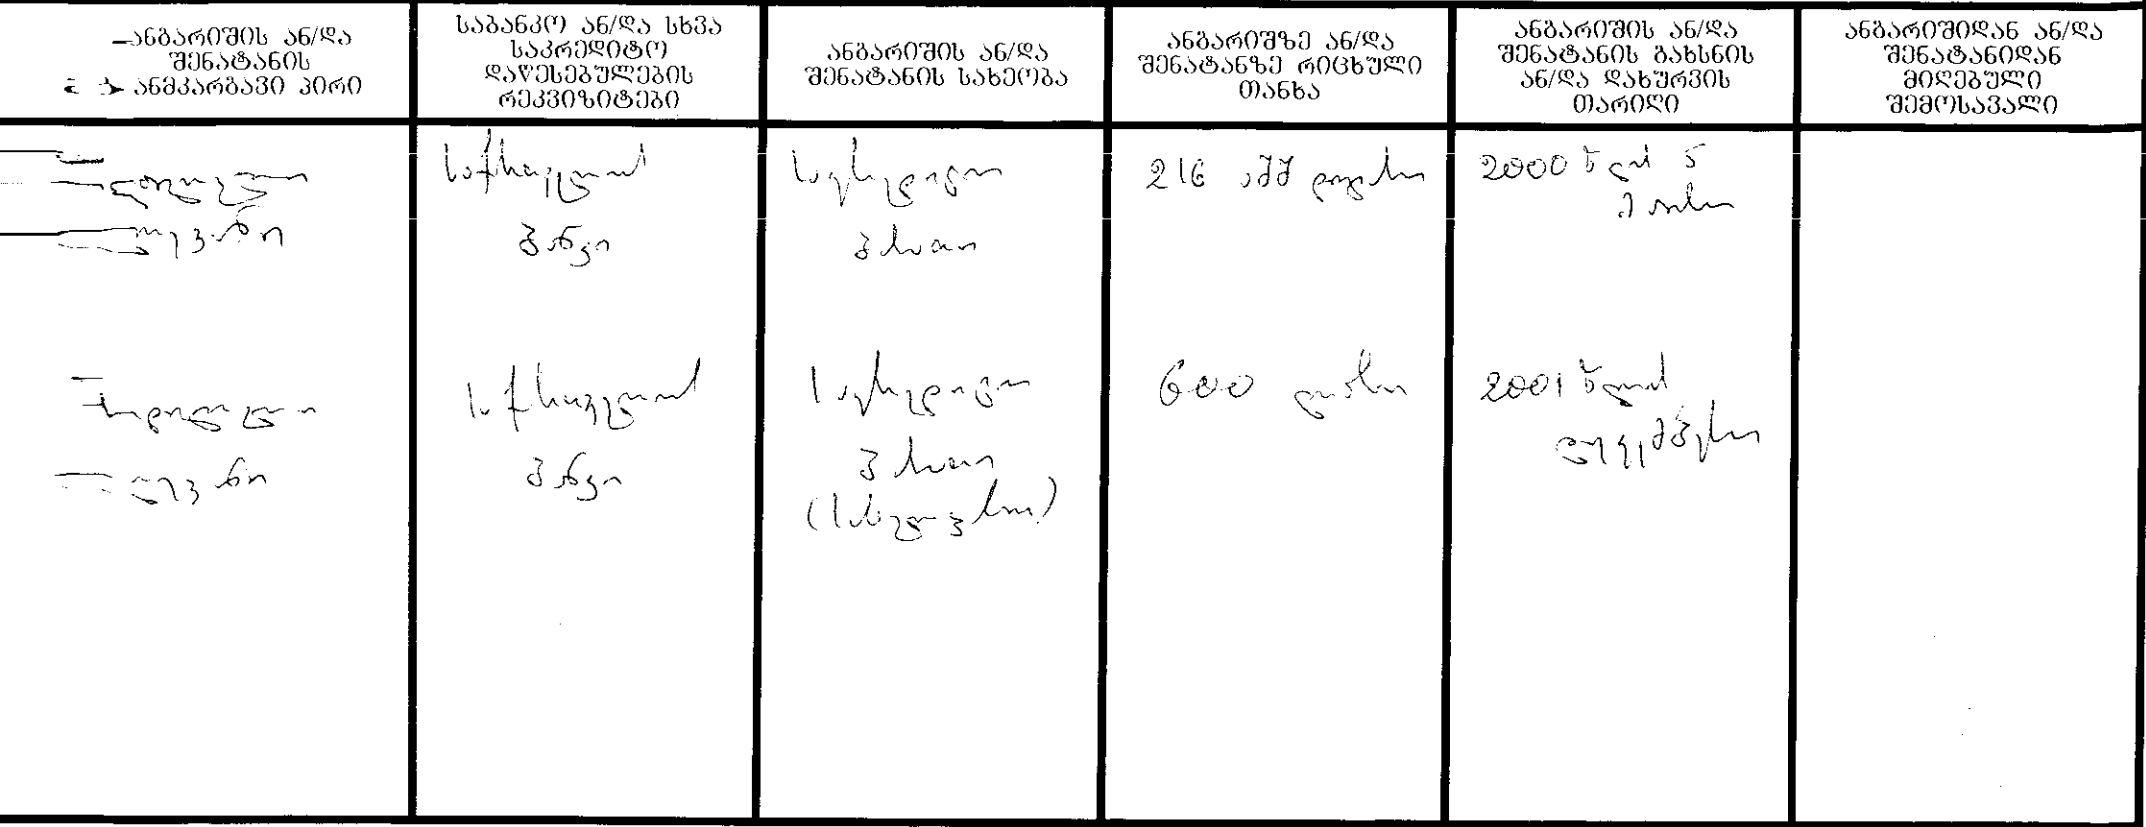 ანგარიშის ან/და
შენატანის
ანმკარგავი პირი
საბანკო ან/და სხვა
საკრედიტო
დაწესებულების
რეკვიზიტები
ანგარიშის ან/და
შენატანის სახეობა
ანგარიშზე ან/და
შენატანზე რიცხული
თანხა
ანგარიშის ან/და
შენატანის გახსნის
ან/და დახურვის
თარიღი
ანგარიშიდან ან/და
შენატანიდან
მიღებული
შემოსავალი
ლევანი
საქართველოს
ბანკი
საკრედიტო
ბარათი
216 აშშ დოლარი
2000 წლის 5
მაისი
ლევანი
საქართველოს
ბანკი
საკრედიტო
ბარათი
(სახელფასო)
600 ლარი
2001 წლის
დეკემბერი